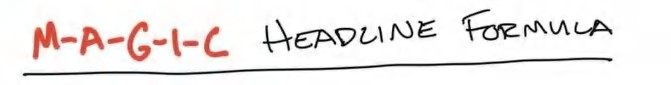 M-A-G-I-C HEADLINE FORMULA